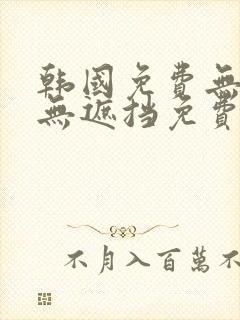 韩國免費無
無遮挡免費
不月入百萬不